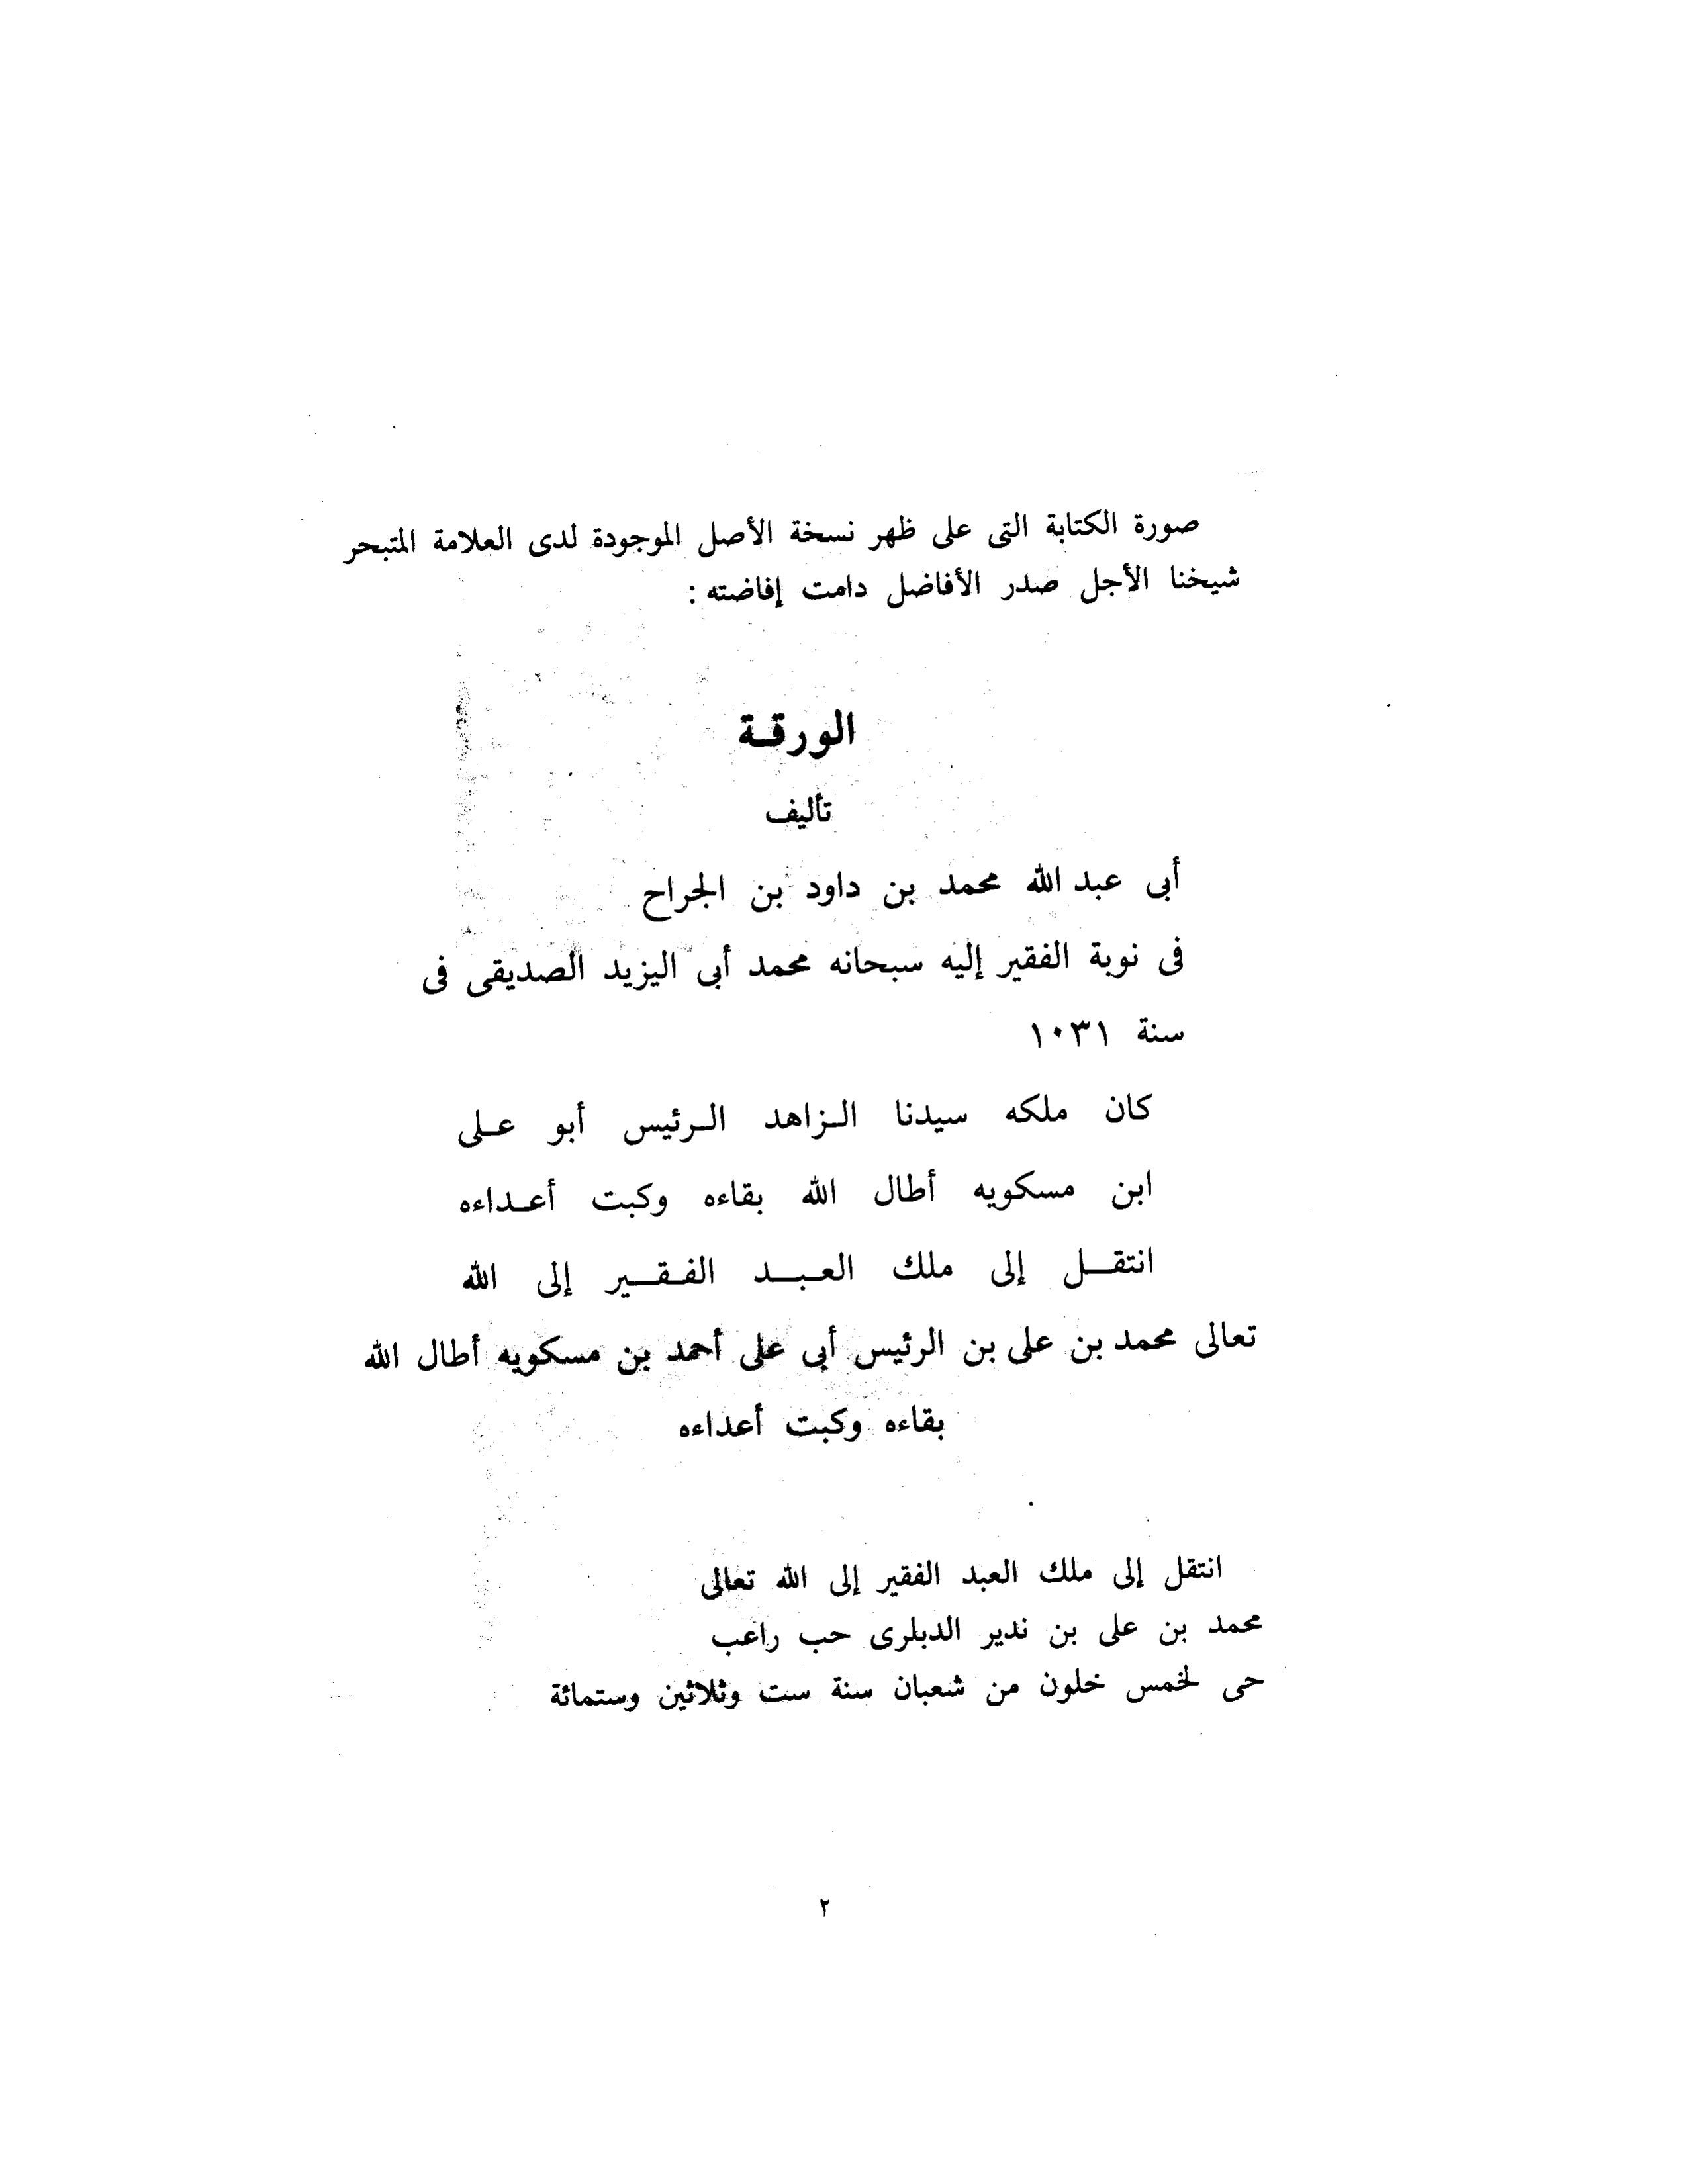 صورة الكتابة التى على ظهر نسخة الأصل الموجودة لدى العلامة المتبحر
شيخنا الأجل صدر الأفاضل دامت إفاضته :
الورقـة
تأليف
أبى عبد الله محمد بن داود بن الجراح
فى نوبة الفقير إليه سبحانه محمد أبى اليزيد الصديقى فى
سنة ١٠٣١
كان ملكه سيدنا الـزاهد الـرئيس أبو عـلى
ابن مسكويه أطال الله بقاءه وكبت أعـداءه
انتقـــل إلى ملك العـبـــد الفـقـــير إلى الله
تعالى محمد بن على بن الرئيس أبى على أحمد بن مسكويه أطال الله
بقاءه وكبت أعداءه
انتقل إلى ملك العبد الفقير إلى الله تعالى
محمد بن على بن ندير الدبلرى حب راعب
حى لخمس خلون من شعبان سنة ست وثلاثين وستمائة
٢